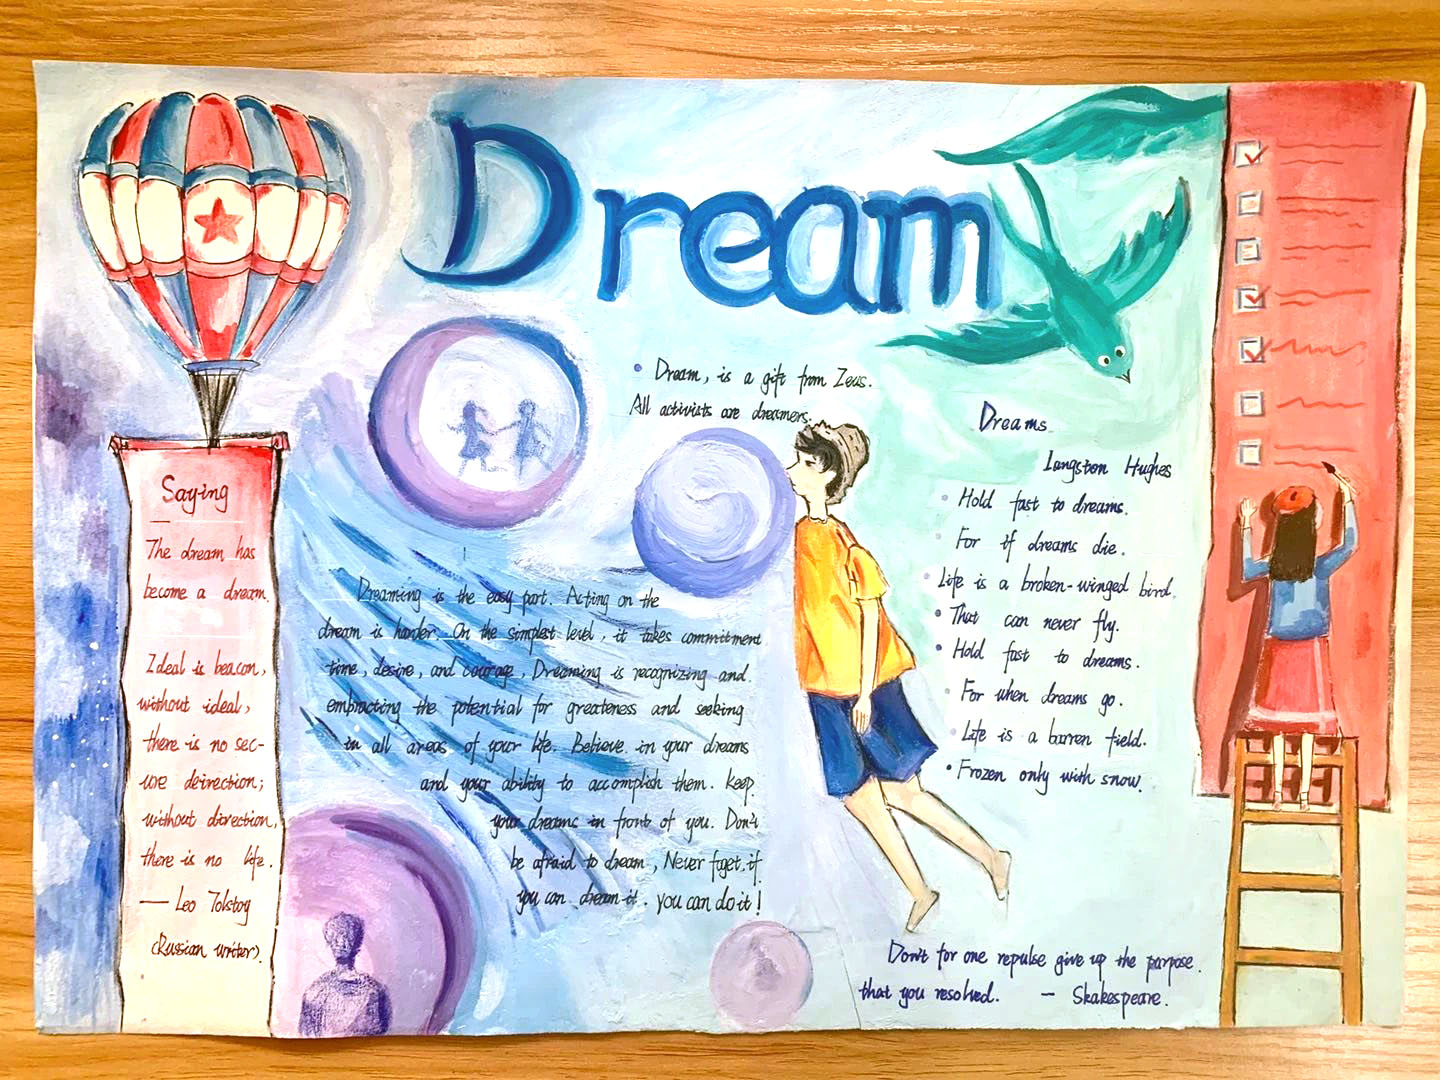 Dream
Saying
The dream has
become a dream.
Ideal is beacon,
without ideal,
there is no sec-
ure deirection;
without direction,
there is no life.
— Leo Tolstoy
(Russian writer).
Dream, is a gift from Zeus.
All activists are dreamers.
Dreaming is the easy part. Acting on the
dream is harder. On the simplest level, it takes commitment
time, desire, and courage, Dreaming is recognizing and
embracting the potential for greateness and seeking
in all areas of your life. Believe in your dreams
and your ability to accomplish them. Keep
your dreams in front of you. Don't
be afraid to dream, Never foget, if
you can dream it. you can do it!
Dreams
Langston Hughes
Hold fast to dreams.
For if dreams die.
Life is a broken-winged bird.
That can never fly.
Hold fast to dreams.
For when dreams go.
Life is a barren field.
Frozen only with snow.
Don't for one repulse give up the purpose.
that you resolved. — Skakespeare.